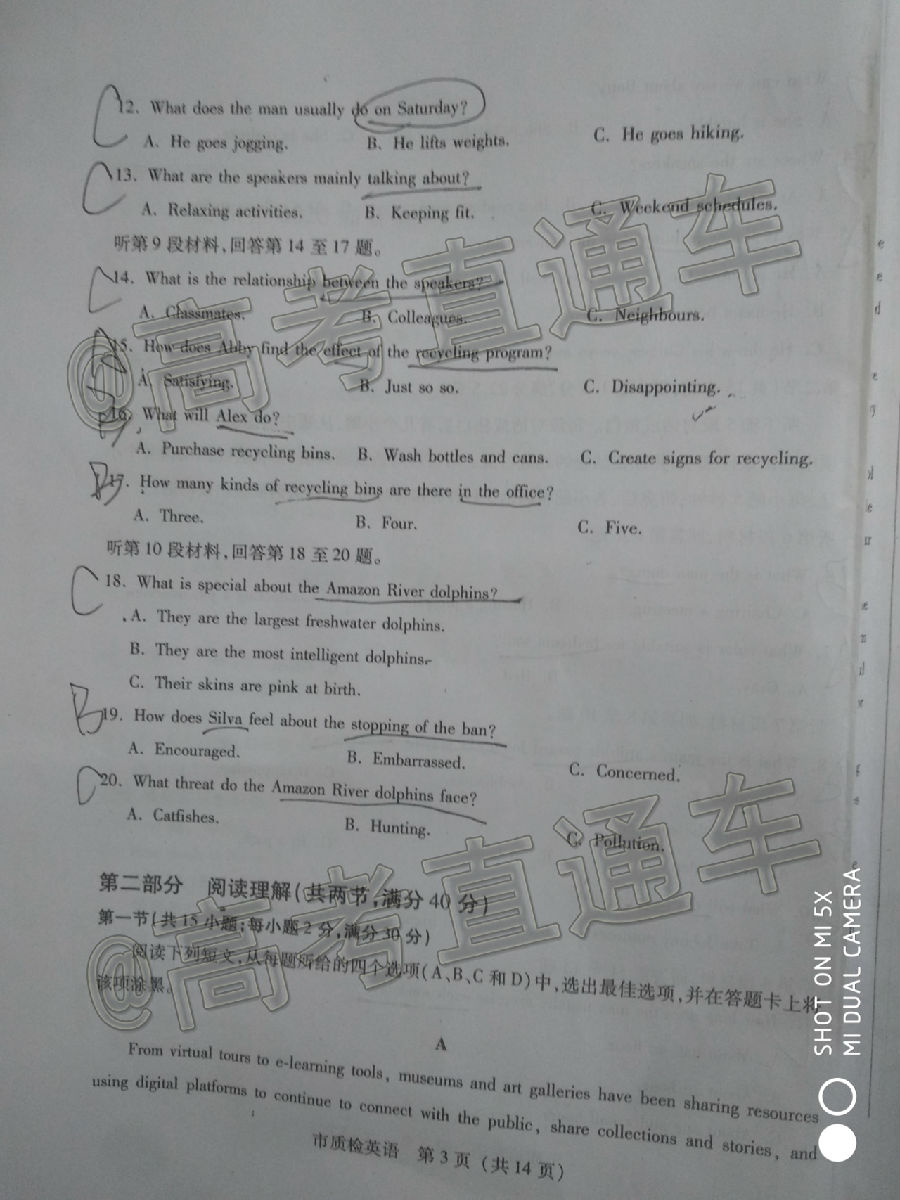 C 12. What does the man usually do on Saturday?
A. He goes jogging. B. He lifts weights. C. He goes hiking.
C 13. What are the speakers mainly talking about?
A. Relaxing activities. B. Keeping fit. C. Weekend schedules.
听第9段材料,回答第14至17题。
C 14. What is the relationship between the speakers?
A. Classmates. B. Colleagues. C. Neighbours.
15. How does Abby find the effect of the recycling program?
A. Satisfying. B. Just so so. C. Disappointing.
16. What will Alex do?
A. Purchase recycling bins. B. Wash bottles and cans. C. Create signs for recycling.
B 17. How many kinds of recycling bins are there in the office?
A. Three. B. Four. C. Five.
听第10段材料,回答第18至20题。
C 18. What is special about the Amazon River dolphins?
A. They are the largest freshwater dolphins.
B. They are the most intelligent dolphins.
C. Their skins are pink at birth.
B 19. How does Silva feel about the stopping of the ban?
A. Encouraged. B. Embarrassed. C. Concerned.
C 20. What threat do the Amazon River dolphins face?
A. Catfishes. B. Hunting. C. Pollution.
第二部分 阅读理解(共两节,满分40分)
第一节(共15小题;每小题2分,满分30分)
阅读下列短文,从每题所给的四个选项(A、B、C和D)中,选出最佳选项,并在答题卡上将
该项涂黑。
A
From virtual tours to e-learning tools, museums and art galleries have been sharing resources
using digital platforms to continue to connect with the public, share collections and stories, and
市质检英语 第3页(共14页)
@高考直通车
@高考直通车
SHOT ON MI 5X
MI DUAL CAMERA